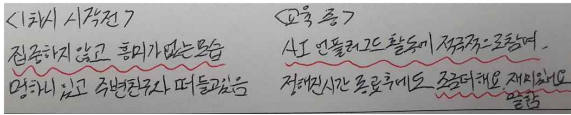 <1차시 시작전>
집중하지 않고 흥미가 없는 모습
멍하니 있고 주변친구와 떠들고있음
<교육 중>
AI 언플러그드 활동에 적극적으로 참여.
정해진시간 종료후에도 조금더해요, 재미있어요
말함